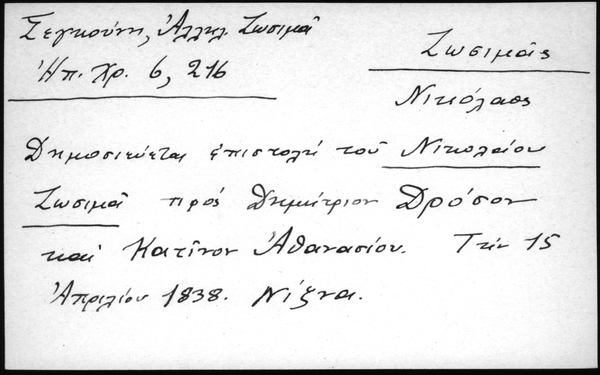 Σεγκούνη, Ἀλληλ. Ζωσιμᾶ
Ἠπ. Χρ. 6, 216
Ζωσιμᾶς
Νικόλαος
Δημοσιεύεται ἐπιστολή τοῦ Νικολάου
Ζωσιμᾶ πρός Δημήτριον Δρόσον
καί Κατῖνον Ἀθανασίου. Τήν 15
Ἀπριλίου 1838. Νίζνα.